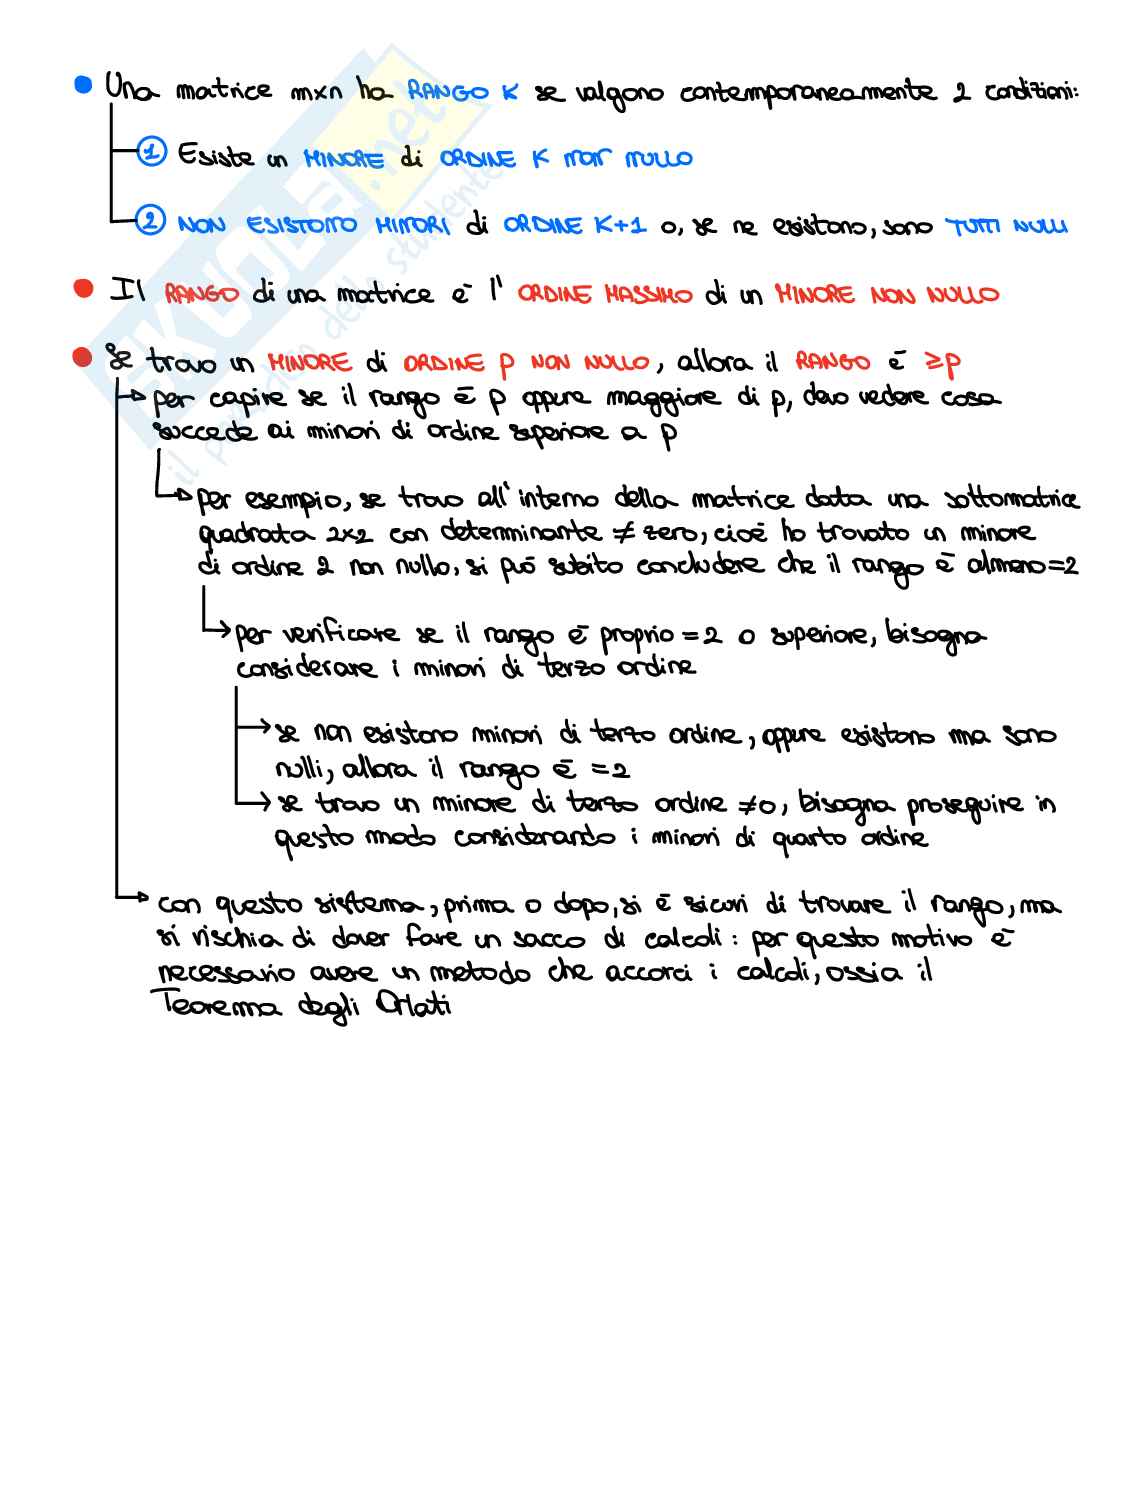 Una matrice m×n ha RANGO K se valgono contemporaneamente 2 condizioni:
1 Esiste un MINORE di ORDINE K NON NULLO
2 NON ESISTONO MINORI di ORDINE K+1 o, se ne esistono, sono TUTTI NULLI
Il RANGO di una matrice è l'ORDINE MASSIMO di un MINORE NON NULLO
Se trovo un MINORE di ORDINE p NON NULLO, allora il RANGO è ≥p
per capire se il rango è p oppure maggiore di p, devo vedere cosa
succede ai minori di ordine superiore a p
per esempio, se trovo all'interno della matrice data una sottomatrice
quadrata 2×2 con determinante ≠ zero, cioè ho trovato un minore
di ordine 2 non nullo, si può subito concludere che il rango è almeno=2
per verificare se il rango è proprio =2 o superiore, bisogna
considerare i minori di terzo ordine
se non esistono minori di terzo ordine, oppure esistono ma sono
nulli, allora il rango è =2
se trovo un minore di terzo ordine ≠0, bisogna proseguire in
questo modo considerando i minori di quarto ordine
con questo sistema, prima o dopo, si è sicuri di trovare il rango, ma
si rischia di dover fare un sacco di calcoli: per questo motivo è
necessario avere un metodo che accorci i calcoli, ossia il
Teorema degli Orlati
SKUOLA.net
il paradiso dello studente